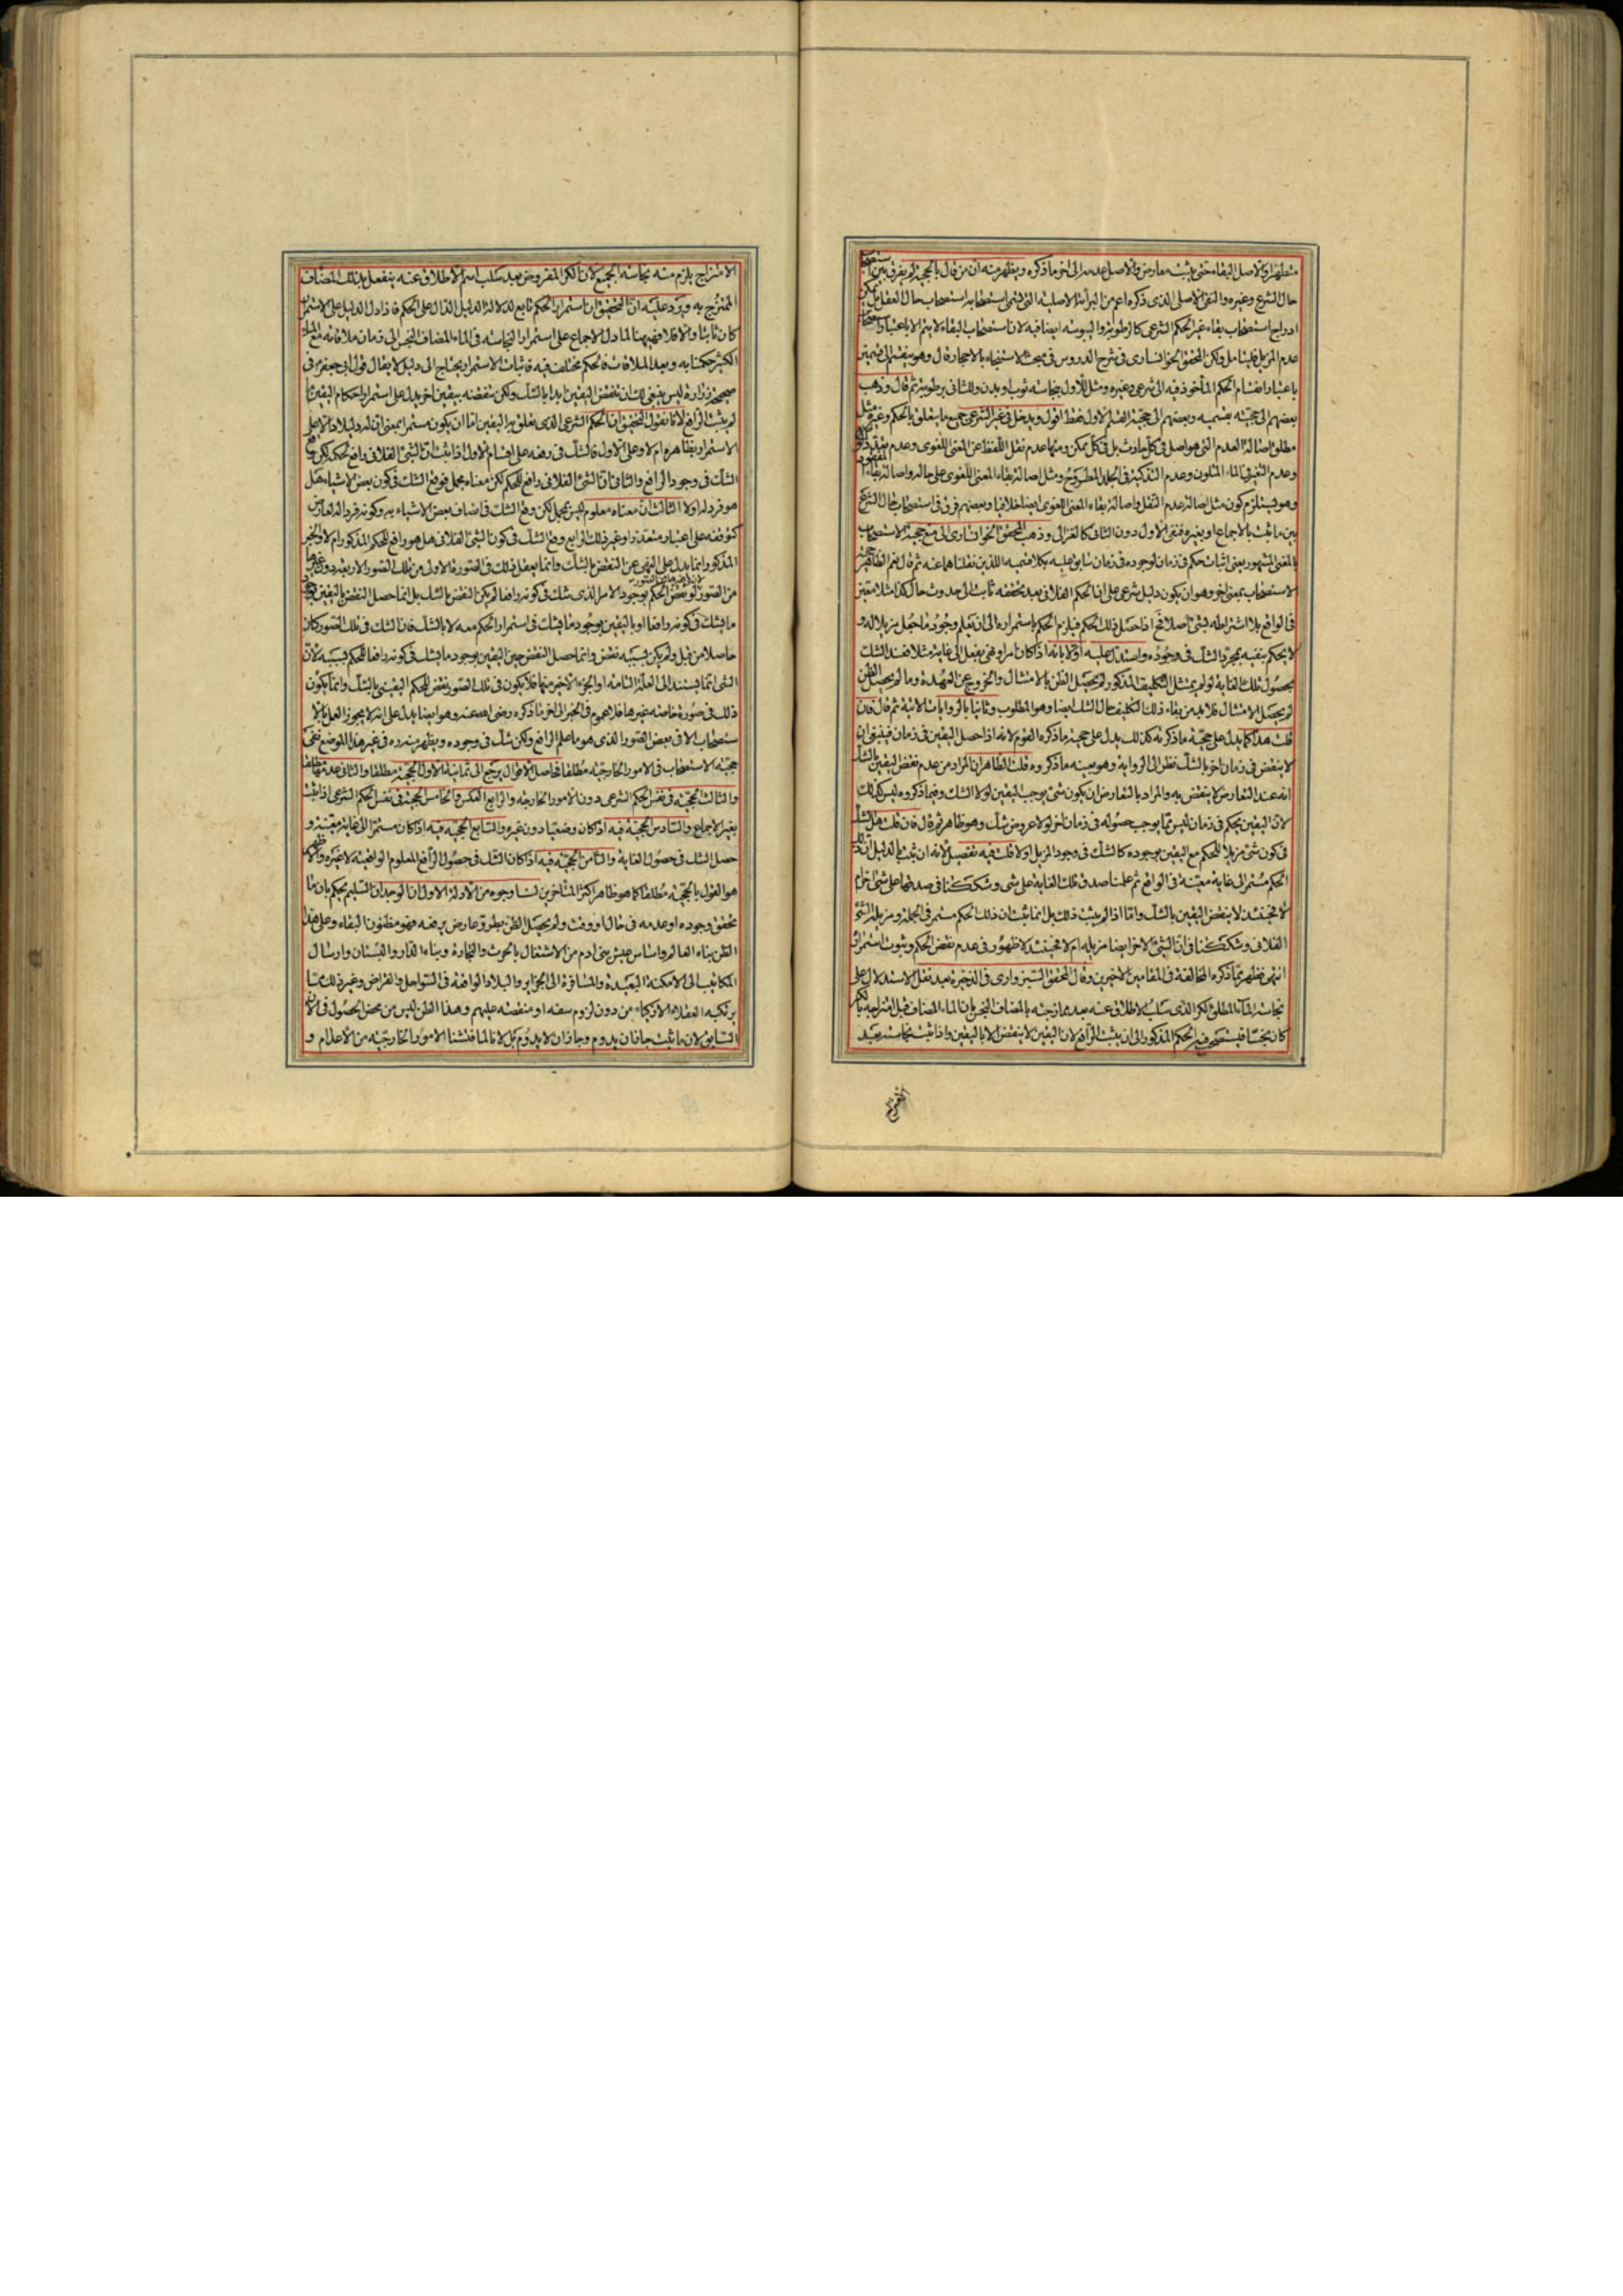 متطهرا وكالاصل البقاء حتى يثبت معارض والاصل عدمه الى اخر ما ذكره ويظهر منه ان من قال بالحجية لم يفرق بين استصحاب
حال الشرع وغيره والنفى الاصلى الذى ذكره اعم من البرائة الاصلية التى تسمى استصحابه استصحاب حال العقل بل يمكن
ادراج استصحاب بقاء غير الحكم الشرعى كالرطوبة واليبوسة ايضا فيه لان استصحاب البقاء لا يتم الا باعتبار استصحاب
عدم المزيل فليتامل ولكن المحقق الخوانسارى فى شرح الدروس فى مبحث الاستنجاء بالاحجار قال وهو ينقسم الى قسمين
باعتبار انقسام الحكم المأخوذ فيه الى شرعى وغيره ومثل للاول بنجاسة ثوب او بدن وللثانى برطوبته ثم قال وذهب
بعضهم الى حجيته بقسميه وبعضهم الى حجية القسم الاول فقط اقول ويدخل فى غير الشرعى جميع ما يتعلق بالحكم وغيره مثل
مطلق اصالة العدم التى هو اصل فى كل حادث بل فى كل ممكن ومنها عدم نقل اللفظ عن المعنى اللغوى وعدم
وعدم التغير فى الماء المتلون وعدم التذكية فى الجلد المطروح ومثل اصالة بقاء المعنى اللغوى على حاله واصالة بقاء المفقود
وهو يستلزم كون مثل اصالة عدم النقل واصالة بقاء المعنى اللغوى ايضا خلافيا وبعضهم فرق فى استصحاب حال الشرع
بين ما ثبت بالاجماع او بغيره فنفى الاول دون الثانى كالغزالى وذهب المحقق الخوانسارى الى منع حجية الاستصحاب
بالمعنى المشهور يعنى اثبات حكم فى زمان لوجوده فى زمان سابق عليه بكلا قسميه اللذين نقلناهما عنه ثم قال نعم الظاهر حجية
الاستصحاب بمعنى اخر وهو ان يكون دليل شرعى على ان الحكم الفلانى بعد تحققه ثابت الى حدوث حال كذا مثلا معين
فى الواقع بلا اشتراطه بشئ اصلا فح اذا حصل ذلك الحكم فيلزم الحكم باستمراره الى ان يعلم وجود ما جعل مزيلا له و
لا يحكم بنفيه بمجرد الشك فى وجوده واستدل عليه اولا بانه اذا كان امر او نهى بفعل الى غاية مثلا فعند الشك
بحصول تلك الغاية لو لم يمتثل التكليف المذكور لم يحصل الظن بالامتثال والخروج عن العهدة وما لم يحصل الظن
لم يحصل الامتثال فلا بد من بقاء ذلك التكليف حال الشك ايضا وهو المطلوب وثانيا بالروايات الاتية ثم قال فان
قلت هذا كما يدل على حجية ما ذكرته كذلك يدل على حجية ما ذكره القوم لانه اذا حصل اليقين فى زمان فينبغى ان
لا ينقض فى زمان اخر بالشك نظرا الى الرواية وهو بعينه ما ذكروه قلت الظاهر ان المراد من عدم نقض اليقين بالشك
انه عند التعارض لا ينقض به والمراد بالتعارض ان يكون شئ يوجب اليقين لولا الشك وفيما ذكروه ليس كذلك
لان اليقين بحكم فى زمان ليس مما يوجب حصوله فى زمان اخر لولا عروض شك وهو ظاهر ثم قال فان قلت هل الشك
فى كون شئ مزيلا للحكم مع اليقين بوجوده كالشك فى وجود المزيل او لا قلت فيه تفصيل لانه ان ثبت بالدليل ان ذلك
الحكم مستمر الى غاية معينة فى الواقع ثم علمنا صدق تلك الغاية على شئ وشككنا فى صدقها على شئ اخر ام
لا فحينئذ لا ينقض اليقين بالشك واما اذا لم يثبت ذلك بل انما ثبت ان ذلك الحكم مستمر فى الجملة ومزيله الشئ
الفلانى وشككنا فى ان الشئ الاخر ايضا مزيله ام لا فحينئذ لا ظهور فى عدم نقض الحكم وثبوت استمراره
انتهى تظهر بما ذكره المخالفة فى المقامين الاخيرين وقال المحقق السبزوارى فى الذخيرة بعد نقل الاستدلال على
نجاسة الماء المطلق الكر الذى سلب الاطلاق عنه بعد ممازجته بالمضاف النجس بان الماء المضاف قبل امتزاجه بالكر
كان نجسا فيستصحب فيه الحكم المذكور الى ان يثبت الرافع لان اليقين لا ينقض الا باليقين واذا ثبت نجاسته بعد
الامتزاج
الامتزاج يلزم منه نجاسة الجميع لان الكر المفروض بعد سلب اسم الاطلاق عنه ينفعل بذلك المضاف
الممتزج به ويرد عليه ان التحقيق ان استمرار الحكم تابع لدلالة الدليل الدال على الحكم فاذا دل الدليل على الاستمرار
كان ثابتا والا فلا فههنا لما دل الاجماع على استمرار النجاسة فى الماء المضاف النجس الى زمان ملاقاته مع الماء
الكثير حكمنا به وبعد الملاقات فالحكم مختلف فيه فاثبات الاستمرار يحتاج الى دليل لا يقال قول ابى جعفر ع فى
صحيحة زرارة ليس ينبغى لك ان تنقض اليقين ابدا بالشك ولكن تنقضه بيقين اخر يدل على استمرار احكام اليقين ما
لم يثبت الرافع لانا نقول التحقيق ان الحكم الشرعى الذى تعلق به اليقين اما ان يكون مستمرا بمعنى ان له دليلا دالا على
الاستمرار بظاهره ام لا وعلى الاول فالشك فى رفعه على اقسام الاول اذا ثبت ان الشئ الفلانى رافع لحكمه لكن وقع
الشك فى وجود الرافع والثانى ان الشئ الفلانى رافع للحكم لكن معناه مجمل فوقع الشك فى كون بعض الاشياء هل
هو فرد له او لا الثالث ان معناه معلوم ليس بمجمل لكن وقع الشك فى اتصاف بعض الاشياء به وكونه فردا له لعارض
كتوقفه على اعتبار متعذر او غير ذلك الرابع وقع الشك فى كون الشئ الفلانى هل هو رافع للحكم المذكور ام لا والخبر
المذكور انما يدل على النهى عن النقض بالشك وانما يعقل ذلك فى الصورة الاولى من تلك الصور الاربعة دون غيرها
من الصور لو نقض الحكم بوجود الامر الذى شك فى كونه رافعا لم يكن النقض بالشك بل انما حصل النقض باليقين بوجود
ما يشك فى كونه رافعا او باليقين بوجود ما يشك فى استمرار الحكم معه لا بالشك فان الشك فى تلك الصور كان
حاصلا من قبل ولم يكن بسببه نقض وانما حصل النقض حين اليقين بوجود ما يشك فى كونه رافعا للحكم بسببه لان
الشئ انما يستند الى العلة التامة او الجزء الاخير منها فلا يكون فى تلك الصور نقض للحكم اليقينى بالشك وانما يكون
ذلك فى صورة خاصة غيرها فلا عموم فى الخبر الى اخر ما ذكره رضى الله عنه وهو ايضا يدل على انه لا يجوز العمل بالا
ستصحاب الا فى بعض الصور الذى هو ما علم الرافع ولكن شك فى وجوده ويظهر منه ره فى غير هذا الموضع نفى
حجية الاستصحاب فى الامور الخارجية مطلقا فحاصل الاقوال يرجع الى ثمانية الاول الحجية مطلقا والثانى عدمها مطلقا
والثالث الحجية فى نفس الحكم الشرعى دون الامور الخارجة والرابع العكس والخامس الحجية فى نفس الحكم الشرعى اذا ثبت
بغير الاجماع والسادس الحجية فيه اذا كان وضعيا دون غيره والسابع الحجية فيه اذا كان مستمرا الى غاية معينة و
حصل الشك فى حصول الغاية والثامن الحجية فيه اذا كان الشك فى حصول الرافع المعلوم الواقعية لا غيره والاظهر
هو القول بالحجية مطلقا كما هو ظاهر اكثر المتأخرين لنا وجوه من الادلة الاول ان الوجدان السليم يحكم بان ما
تحقق وجوده او عدمه فى حال او وقت ولم يحصل الظن بطرو عارض يرفعه فهو مظنون البقاء وعلى هذا
الظن بناء العالم واساس عيش بنى ادم من الاشتغال بالحرث والتجارة وبناء الدار والبستان وارسال
المكاتيب الى الامكنة البعيدة والمسافرة الى الجزاير والبلاد الواقعة فى السواحل والقراض وغير ذلك مما
يرتكبه العقلاء الازكياء من دون لزوم سفه او منقصة عليهم وهذا الظن ليس من محض الحصول فى الان
السابق لان ما ثبت جاز ان يدوم وجاز ان لا يدوم بل لانا لما فتشنا الامور الخارجية من الاعدام و